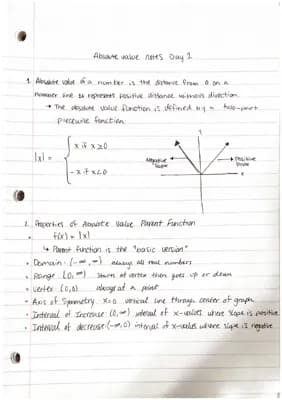 Absolute value notes Day 1
1. Absolute value of a number is the distance from 0 on a
number line & represents positive distance without direction.
→ The absolute value function is defined by a two-part
piecewise function.
|x| = { x if x≥0
-x if x<0
Negative Slope
Positive Slope
y
x
2. Properties of Absolute Value Parent Function
• f(x) = |x|
↳ Parent function is the "basic version"
• Domain: (-∞, ∞) always all real numbers
• Range: [0, ∞) starts at vertex then goes up or down
• Vertex (0,0) always at a point
• Axis of Symmetry: x=0 vertical line through center of graph
• Interval of Increase: (0, ∞) interval of x-values where slope is positive
• Interval of decrease: (-∞, 0) interval of x-values where slope is negative